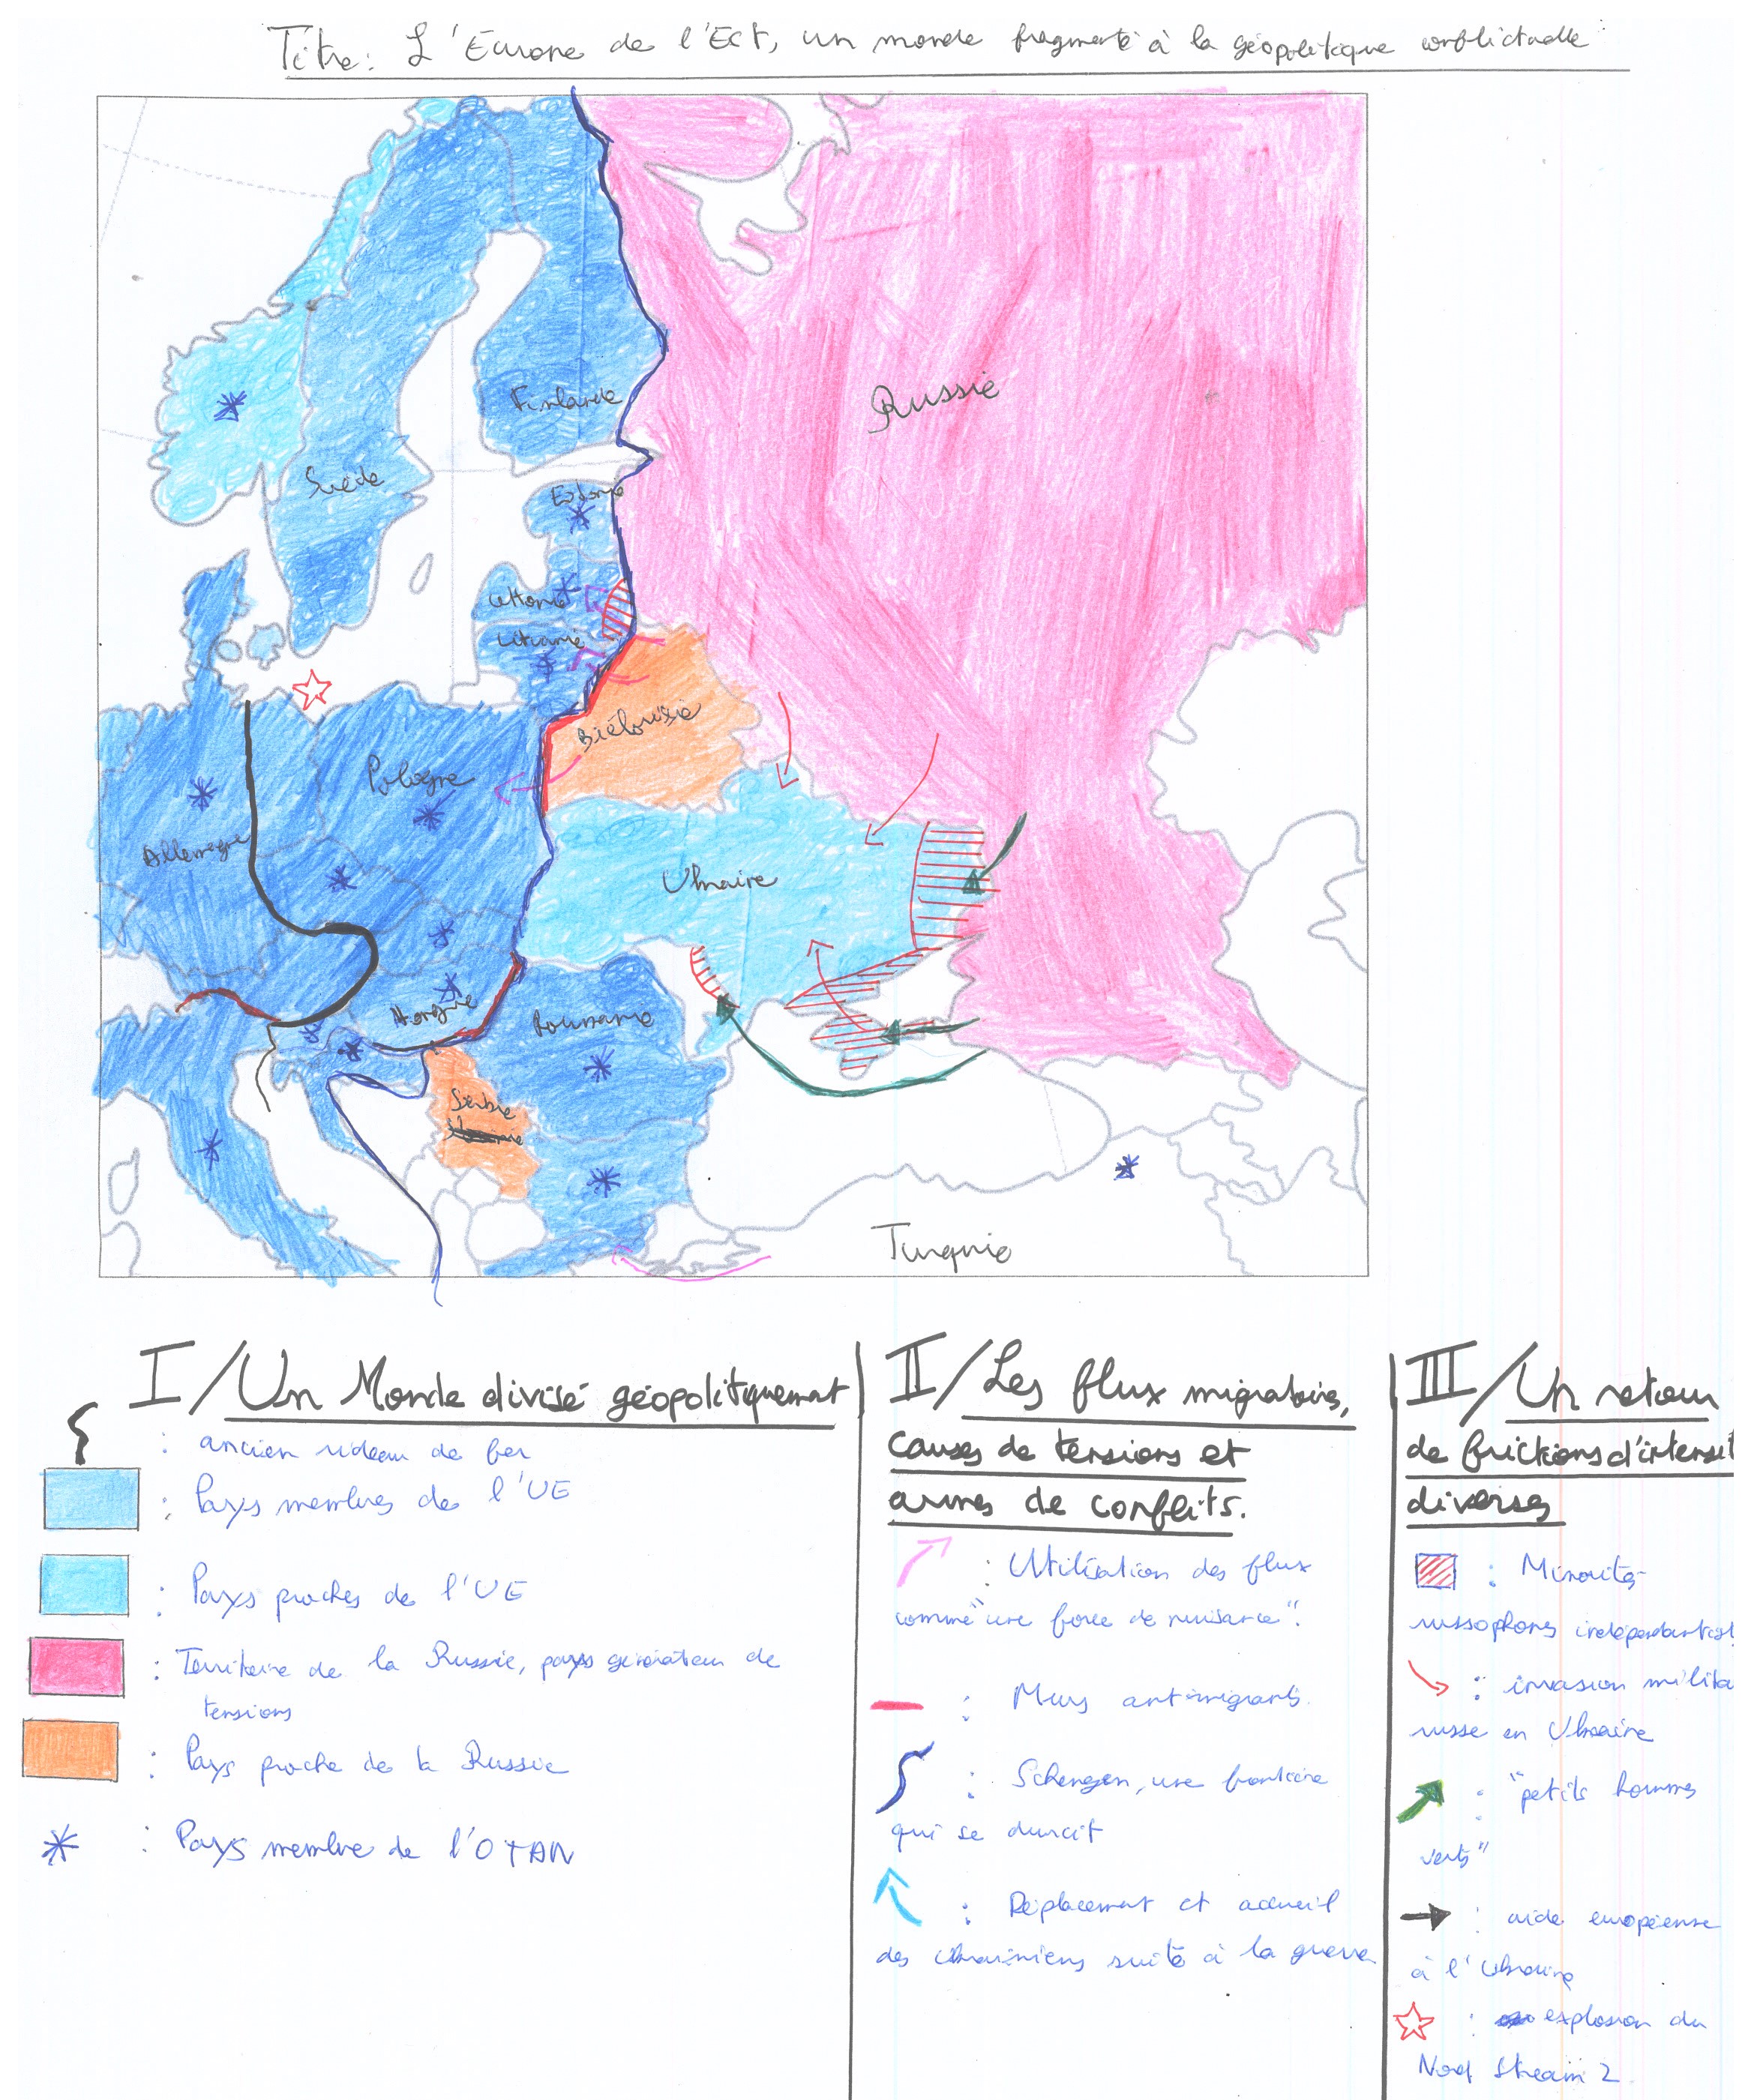 Titre: L'Europe de l'Est, un monde fragmenté à la géopolitique conflictuelle
Russie
Finlande
Suède
Estonie
Lettonie
Lituanie
Biélorussie
Pologne
Allemagne
Ukraine
Hongrie
Roumanie
Serbie
Turquie
I/Un Monde divisé géopolitiquement
: ancien rideau de fer
: Pays membres de l'UE
: Pays proches de l'UE
: Territoire de la Russie, pays générateur de
tensions
: Pays proche de la Russie
: Pays membre de l'OTAN
II/Les flux migratoires,
causes de tensions et
armes de conflits.
: Utilisation des flux
comme "une force de nuisance".
: Murs antimigrants.
: Schengen, une frontière
qui se durcit
: Déplacement et accueil
des Ukrainiens suite à la guerre
III/Un retour
de frictions d'intensit
diverses
: Minorités
russophones indépendantist
: invasion milita
russe en Ukraine
: "petits hommes
verts"
: aide européenne
à l'Ukraine
: explosion du
Nord Stream 2